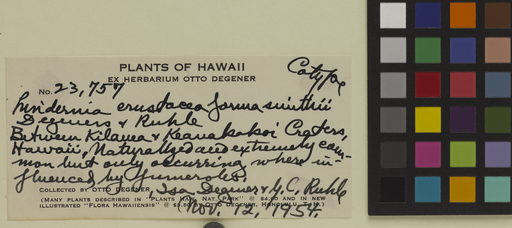 PLANTS OF HAWAII
Cotype
EX HERBARIUM OTTO DEGENER
No. 23,757
Lindernia crustacea forma smithii
Degener & Ruhle
Between Kilauea & Keanakakoi Craters,
Hawaii, Naturalized and extremely com-
mon but only occurring where in-
fluenced by fumeroles.
COLLECTED BY OTTO DEGENER, Isa Degener & G.C. Ruhle
(MANY PLANTS DESCRIBED IN "PLANTS HAW. NAT. PARK" @ AND IN NEW
ILLUSTRATED "FLORA HAWAIIENSIS" @ BY OTTO DEGENER, HONOLULU, T.H.)
Nov. 12, 1954.